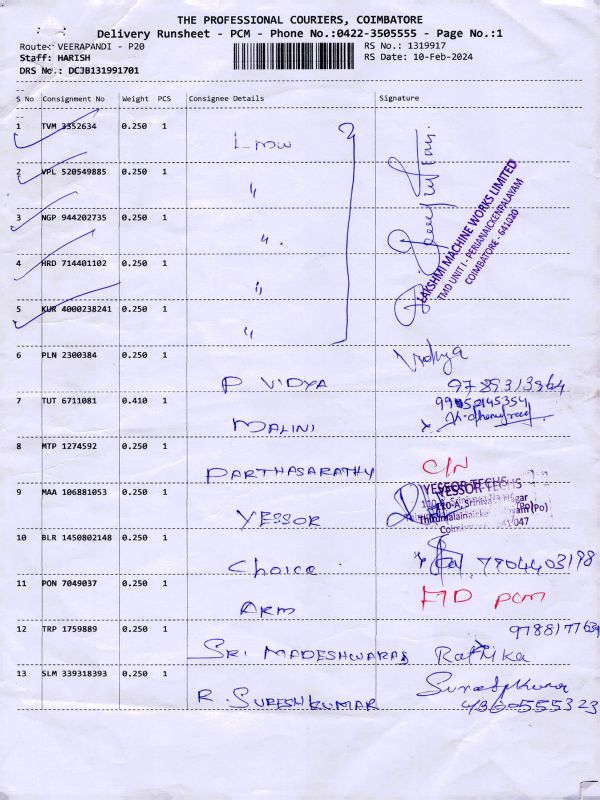 THE PROFESSIONAL COURIERS, COIMBATORE
Delivery Runsheet - PCM - Phone No.:0422-3505555 - Page No.:1
Route: VEERAPANDI - P20
RS No.: 1319917
Staff: HARISH
RS Date: 10-Feb-2024
DRS No.: DCJB131991701
S No Consignment No Weight PCS Consignee Details Signature
1 TVM 3352634 0.250 1 Lmw
2 VPL 520549885 0.250 1 "
3 NGP 944202735 0.250 1 "
4 HRD 714401102 0.250 1 "
5 KUR 4000238241 0.250 1 "
LAKSHMI MACHINE WORKS LIMITED
TMD UNIT I - PERIANAICKENPALAYAM
COIMBATORE - 641020
6 PLN 2300384 0.250 1 P VIDYA Vidya
7 TUT 6711081 0.410 1 MALINI
8 MTP 1274592 0.250 1 PARTHASARATHY C/N
9 MAA 106881053 0.250 1 YESSOR
YESSOR TECHS
110-A, Srinivasa Nagar
Thirumalainaicken
Coimbatore
10 BLR 1450802148 0.250 1 Choice 7904403198
11 PON 7049037 0.250 1 ARM PCM
12 TRP 1759889 0.250 1 SRI MADESHWARAS Rathika
13 SLM 339318393 0.250 1 R. SURESHKUMAR Sureshkumar